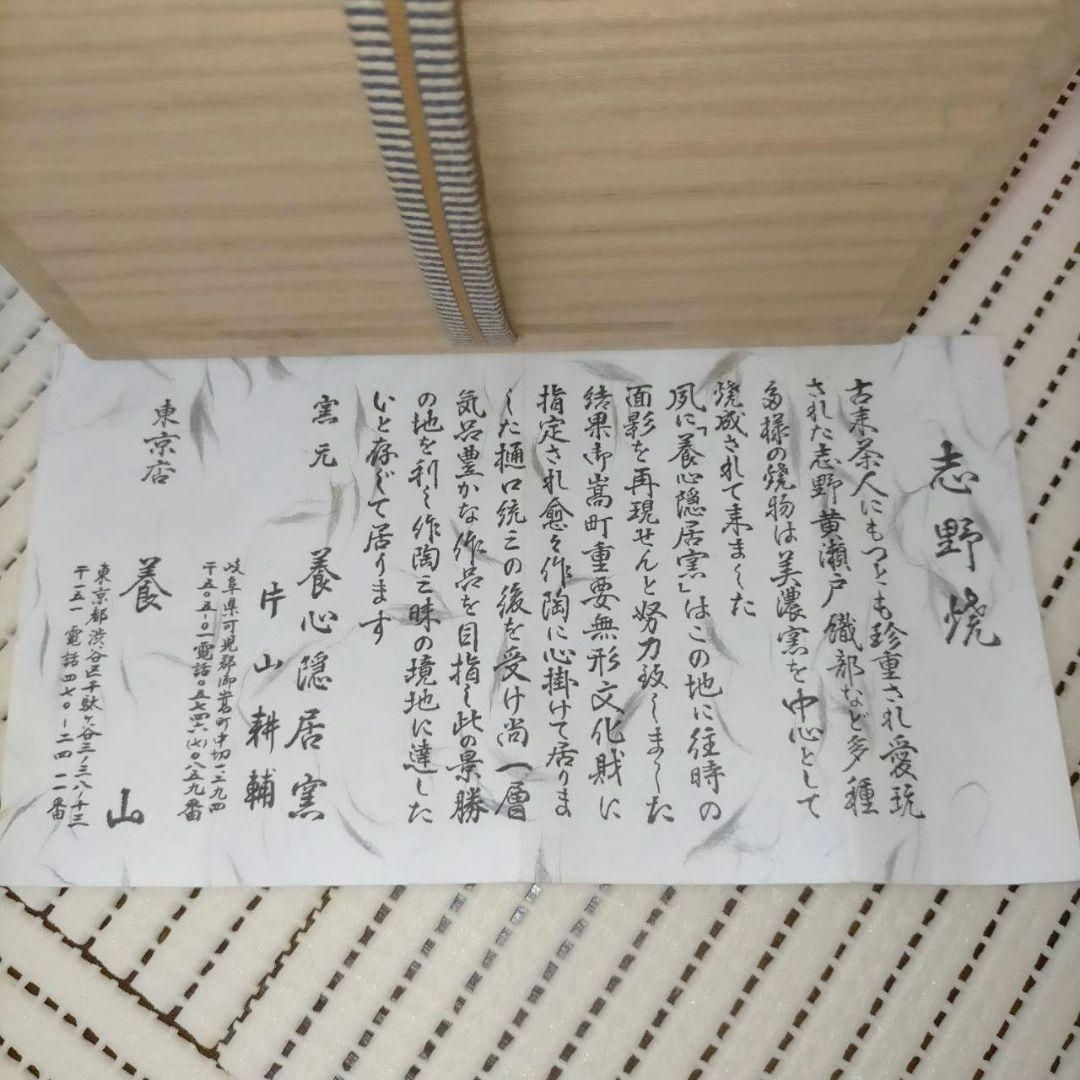 志野焼
古来茶人にもつとも珍重され愛玩
された志野黄瀬戸 織部など多種
多様の焼物は美濃窯を中心として
焼成されて来ました
夙に「養心隠居窯」はこの地に往時の
面影を再現せんと努力致しました
結果御嵩町重要無形文化財に
指定され愈々作陶に心掛けて居りま
した樋口統三の後を受け尚一層
気品豊かな作品を目指し此の景勝
の地を利し作陶三昧の境地に達した
いと存じて居ります
窯元 養心隠居窯
片山耕輔
岐阜県可児郡御嵩町中切一二九四
〒五〇五-〇一電話〇五七四六(七)〇八五九番
東京店 養山
東京都渋谷区千駄ヶ谷三ノ三八ノ十三
〒一五一 電話四七〇-二四一一番